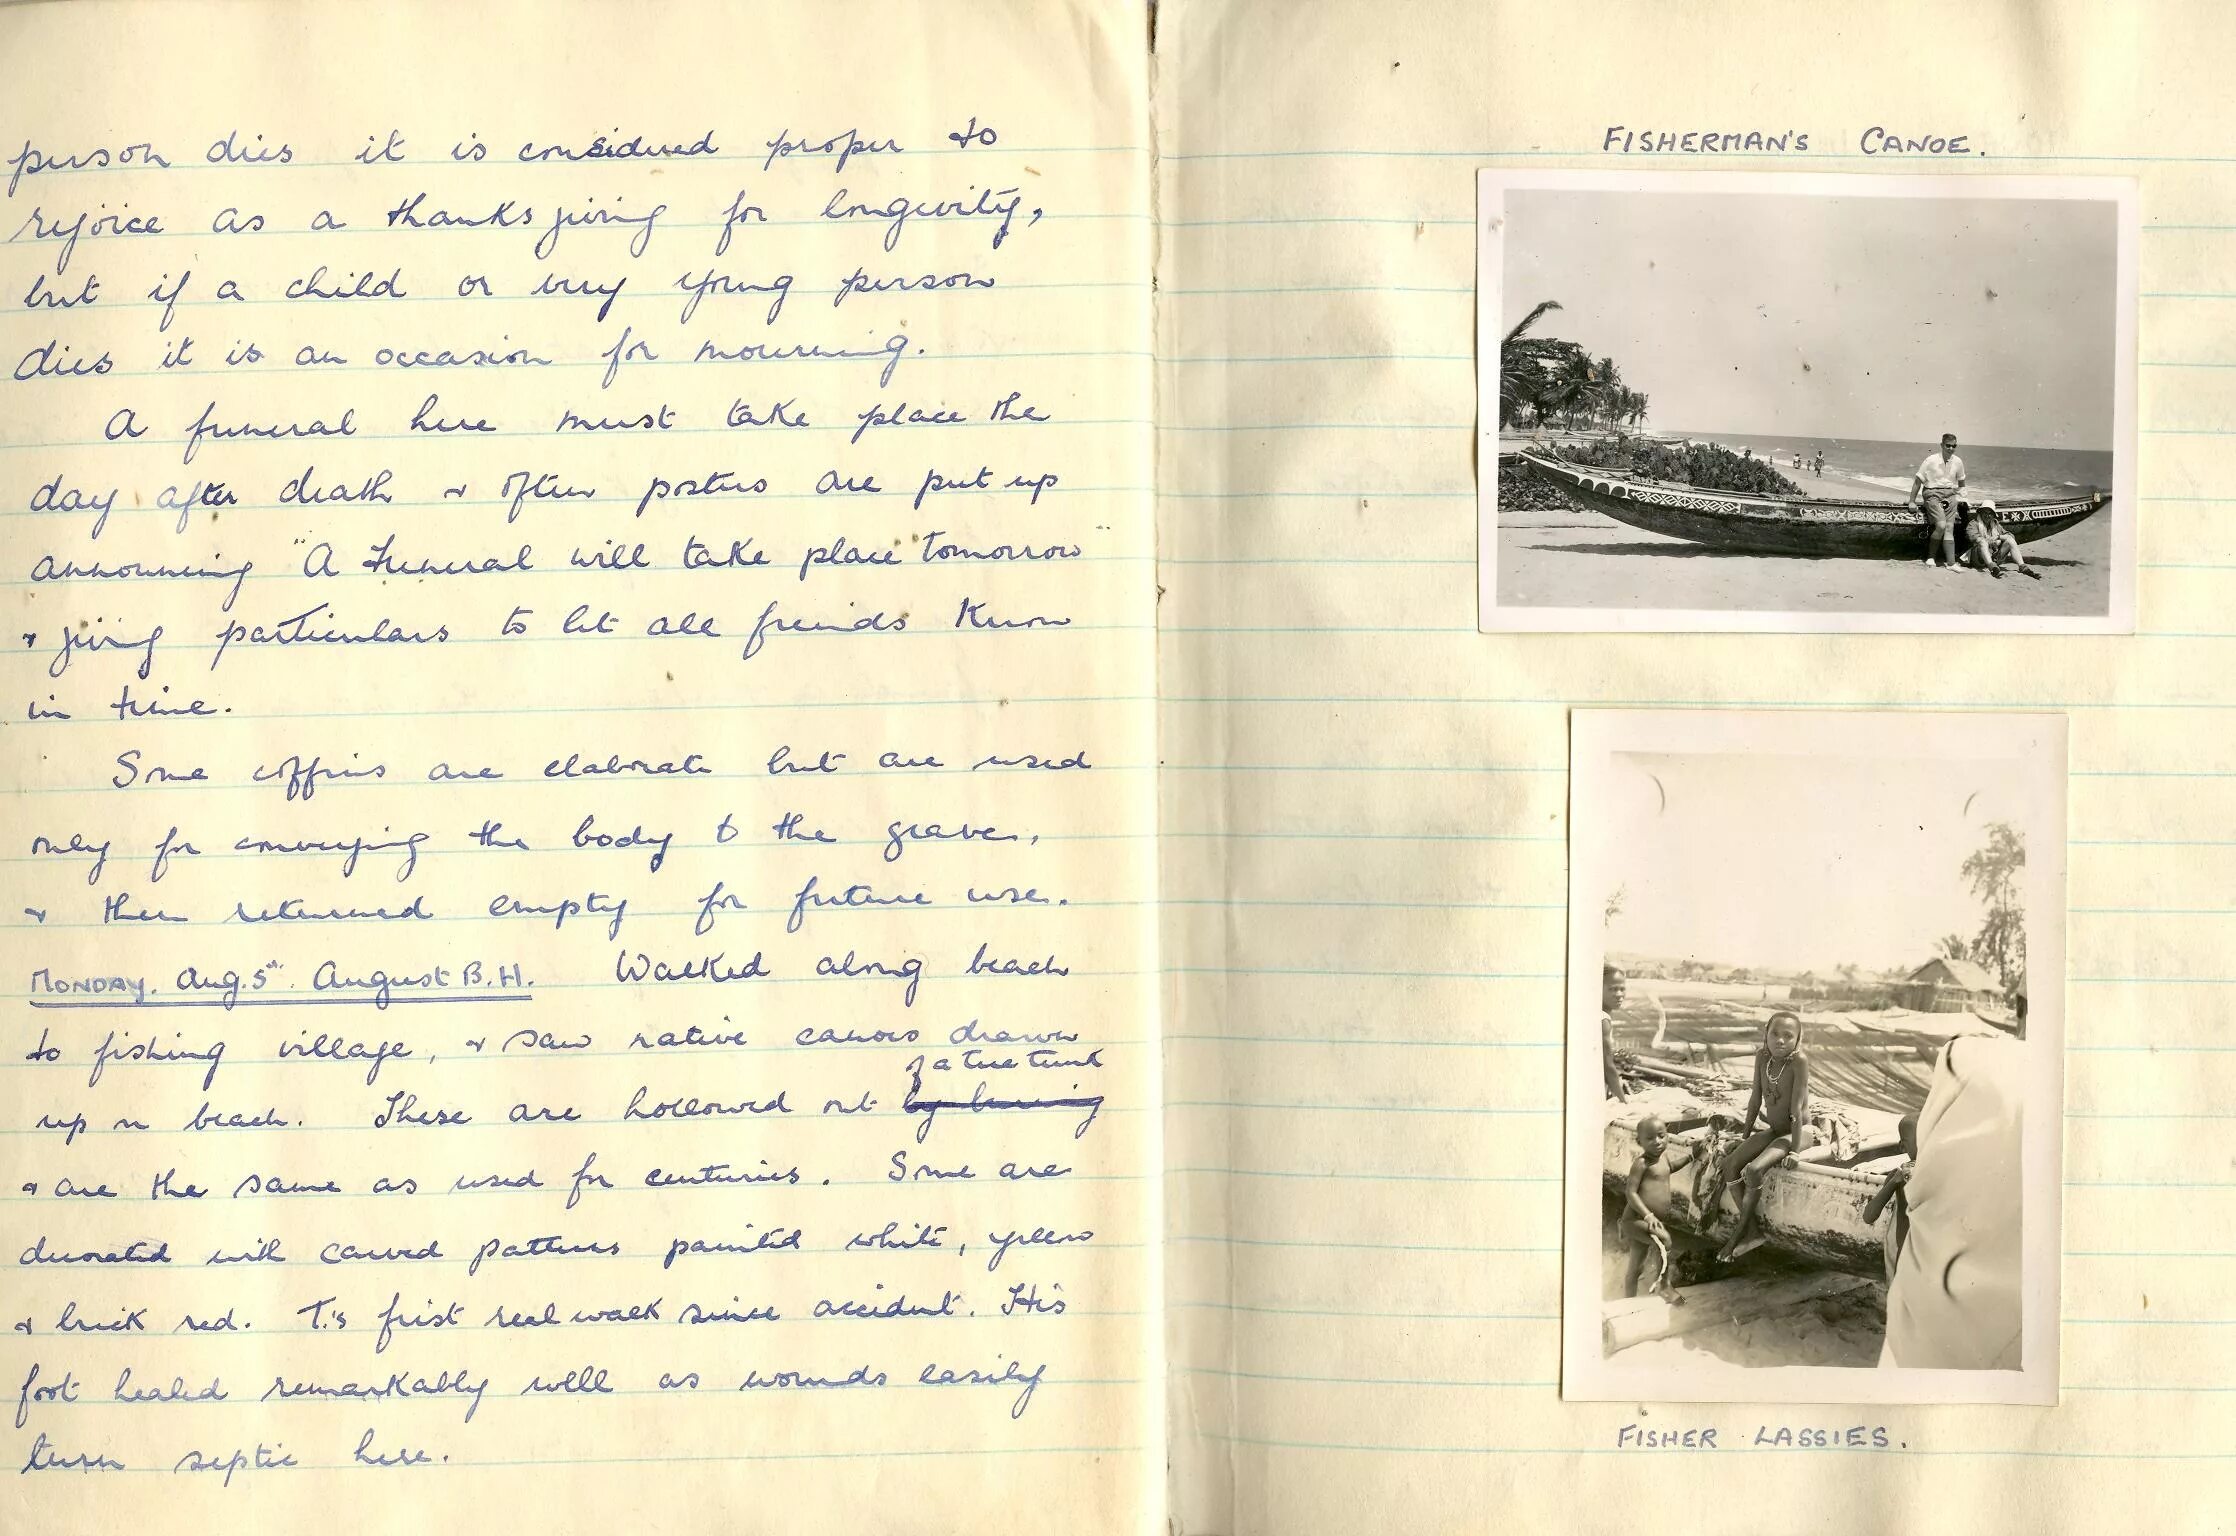 person dies it is considered proper to
rejoice as a thanksgiving for longevity,
but if a child or very young person
dies it is an occasion for mourning.
A funeral here must take place the
day after death & often posters are put up
announcing "A Funeral will take place tomorrow"
& giving particulars to let all friends know
in time.
Some coffins are elaborate but are used
only for conveying the body to the grave,
& then returned empty for future use.
MONDAY. Aug. 5th. August B.H. Walked along beach
to fishing village, & saw native canoes drawn
of a tree trunk
up on beach. These are hollowed out by burning
& are the same as used for centuries. Some are
decorated with carved patterns painted white, yellow
& brick red. T.'s first real walk since accident. His
foot healed remarkably well as wounds easily
turn septic here.
FISHERMAN'S CANOE.
FISHER LASSIES.